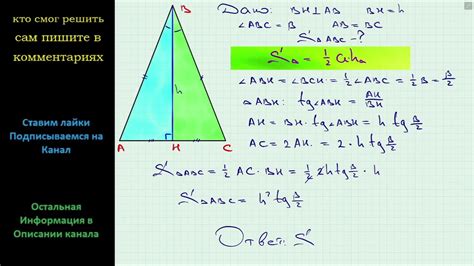 кто смог решить
сам пишите в
комментариях
Ставим лайки
Подписываемся на
Канал
Остальная
Информация в
Описании канала
B
h
A
H
C
Дано: BH⊥AB BH = h
∠ABC = B AB = BC
S△ABC - ?
S△ = 1/2 a·hₐ
∠ABH = ∠BCH = 1/2 ∠ABC = 1/2 B = B/2
△ABH: tg∠ABH = AH/BH
AH = BH · tg∠ABH = h tg B/2
AC = 2AH = 2 · h tg B/2
S△ABC = 1/2 AC · BH = 1/2 2h tg B/2 · h
S△ABC = h² tg B/2
Ответ: S